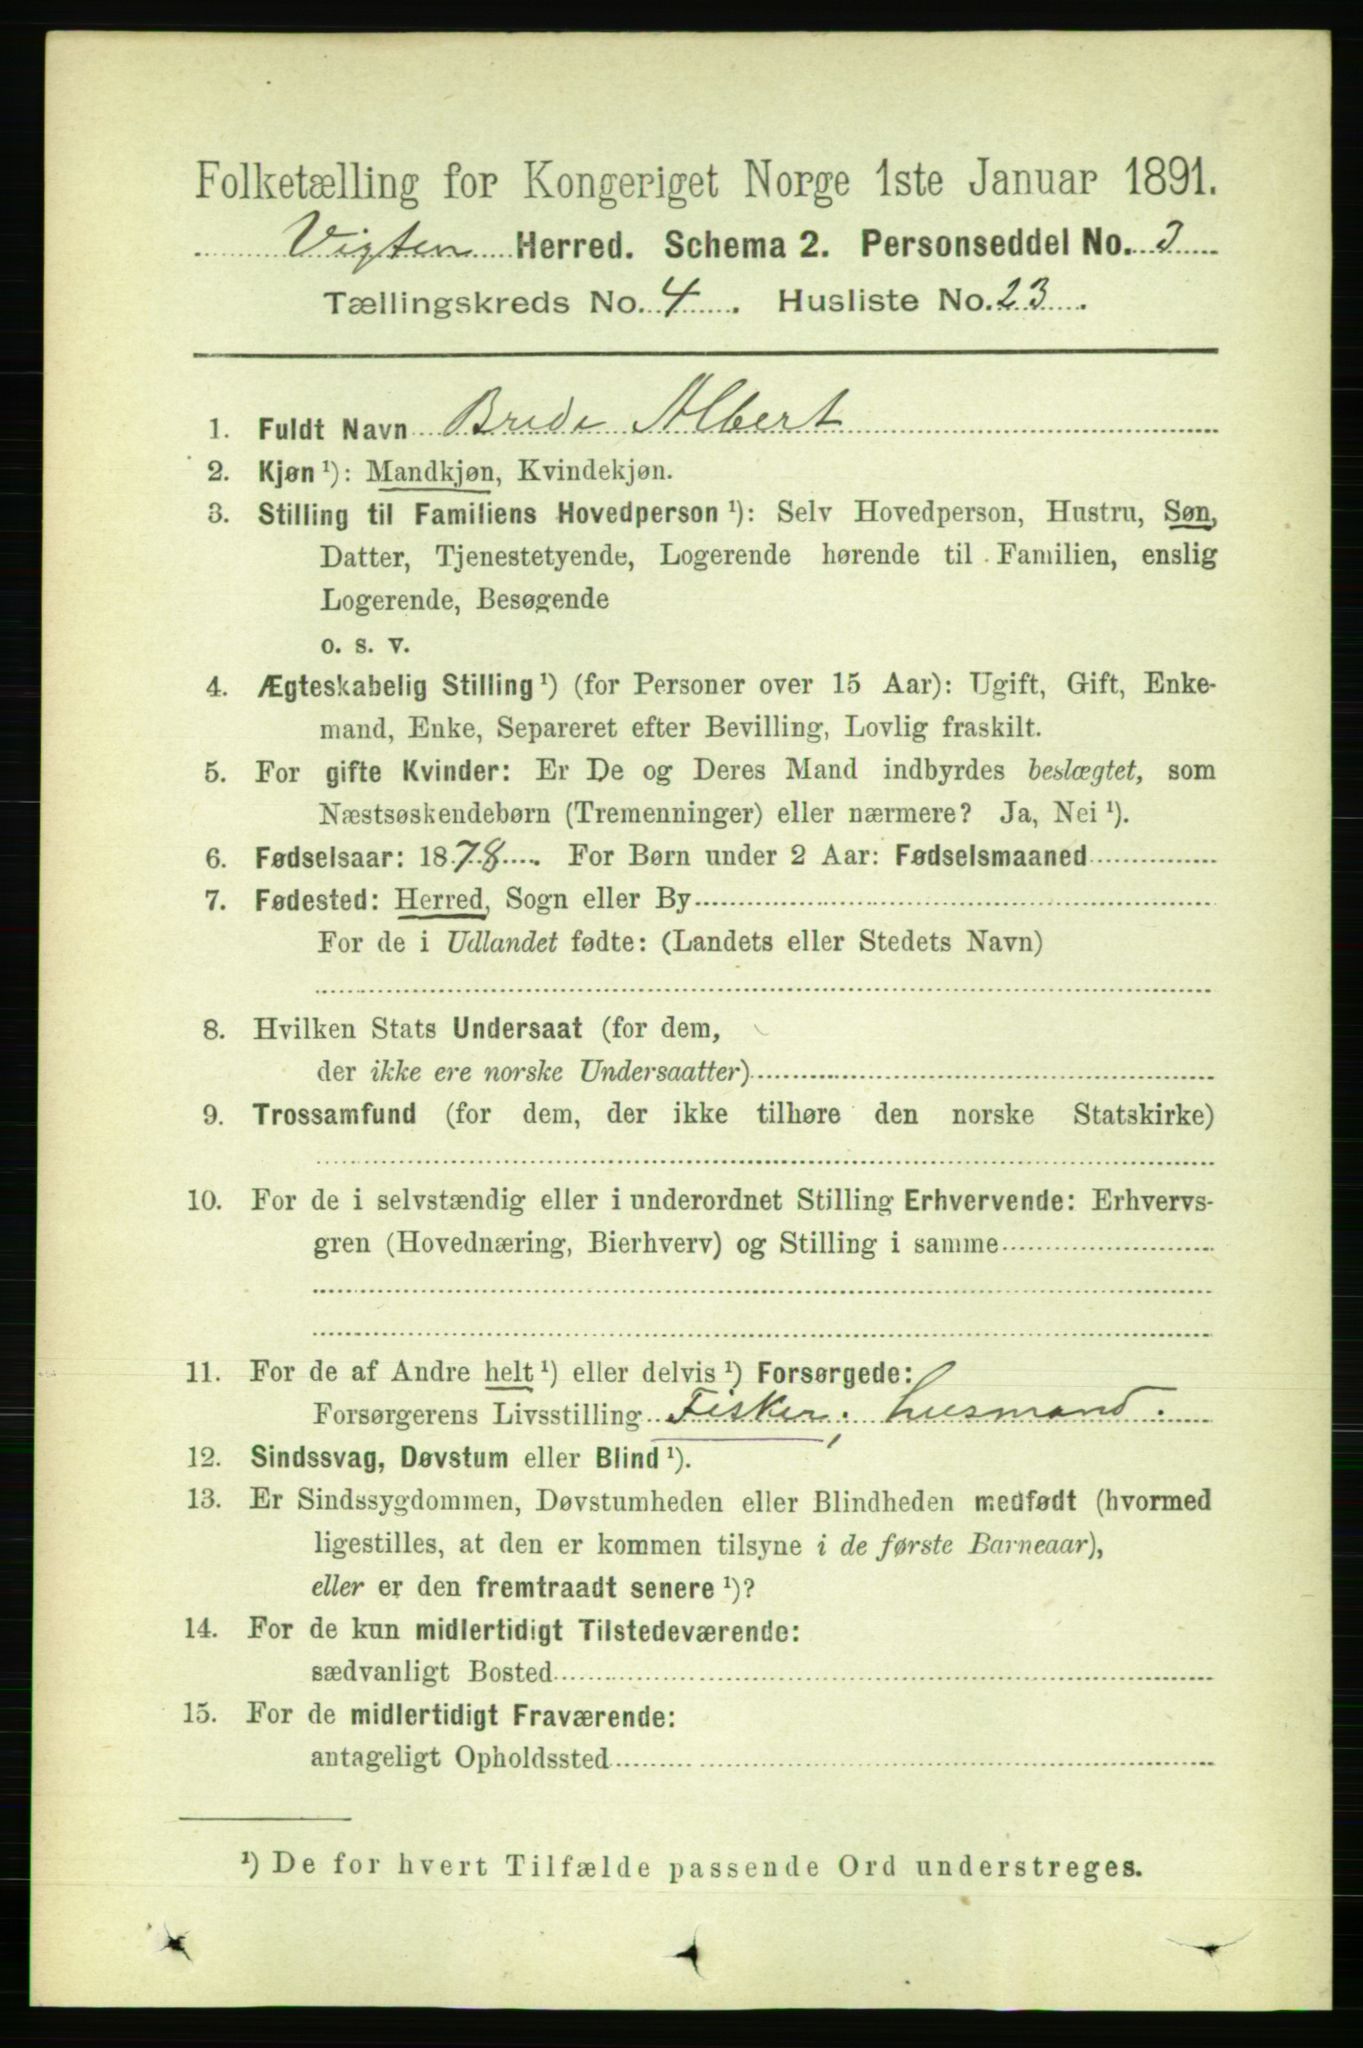 Folketælling for Kongeriget Norge 1ste Januar 1891.
Vigten Herred. Schema 2. Personseddel No. 3
Tællingskreds No. 4. Husliste No. 23.
1. Fuldt Navn Brede Albert
2. Kjøn ¹): Mandkjøn, Kvindekjøn.
3. Stilling til Familiens Hovedperson ¹): Selv Hovedperson, Hustru, Søn,
Datter, Tjenestetyende, Logerende hørende til Familien, enslig
Logerende, Besøgende
o. s. v.
4. Ægteskabelig Stilling ¹) (for Personer over 15 Aar): Ugift, Gift, Enke-
mand, Enke, Separeret efter Bevilling, Lovlig fraskilt.
5. For gifte Kvinder: Er De og Deres Mand indbyrdes beslægtet, som
Næstsøskendebørn (Tremenninger) eller nærmere? Ja, Nei ¹).
6. Fødselsaar: 1878. For Børn under 2 Aar: Fødselsmaaned
7. Fødested: Herred, Sogn eller By
For de i Udlandet fødte: (Landets eller Stedets Navn)
8. Hvilken Stats Undersaat (for dem,
der ikke ere norske Undersaatter)
9. Trossamfund (for dem, der ikke tilhøre den norske Statskirke)
10. For de i selvstændig eller i underordnet Stilling Erhvervende: Erhvervs-
gren (Hovednæring, Bierhverv) og Stilling i samme
11. For de af Andre helt ¹) eller delvis ¹) Forsørgede:
Forsørgerens Livsstilling Fisker; husmand.
12. Sindssvag, Døvstum eller Blind ¹).
13. Er Sindssygdommen, Døvstumheden eller Blindheden medfødt (hvormed
ligestilles, at den er kommen tilsyne i de første Barneaar),
eller er den fremtraadt senere ¹)?
14. For de kun midlertidigt Tilstedeværende:
sædvanligt Bosted
15. For de midlertidigt Fraværende:
antageligt Opholdssted
¹) De for hvert Tilfælde passende Ord understreges.